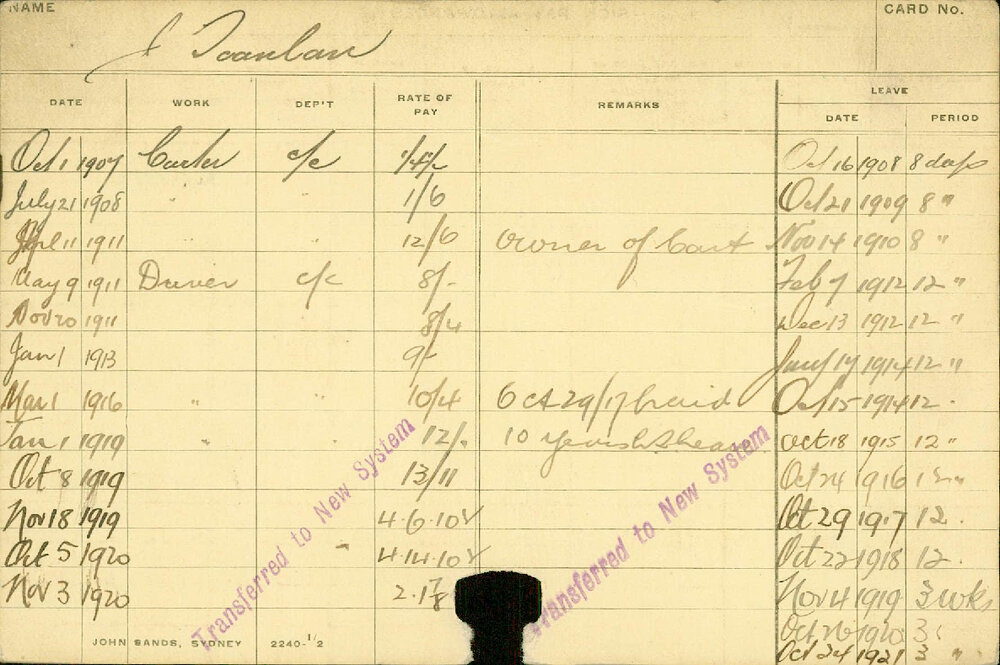 NAME
CARD No.
J
DATE WORK DEP'T RATE OF PAY REMARKS LEAVE DATE PERIOD
Oct 1 1907 Carter c/c Oct 16 1908 8 days
July 21 1908 " " 1/6 Oct 21 1909 8 "
April 11 1911 " " 12/6 Owner of Cart Nov 14 1910 8 "
May 9 1911 Driver c/c 8/- Feb 7 1912 12 "
Nov 20 1911 8/4 Dec 13 1912 12 "
Jan 1 1913 9/- Jany 17 1914 12 "
Mar 1 1916 " " 10/4 Oct 29/17 Oct 15 1914 12 .
Jan 1 1919 " " 12/. 10 Oct 18 1915 12 "
Oct 8 1919 13/11 Oct 24 1916 12 "
Nov 18 1919 4.6.10 Oct 29 1917 12 .
Oct 5 1920 " 4.14.10 Oct 22 1918 12 .
Nov 3 1920 Nov 4 1919 3 wks
Oct 26 1920 3 "
Oct 24 1921 3 " "
Transferred to New System
Transferred to New System
JOHN SANDS, SYDNEY 2240-1/2